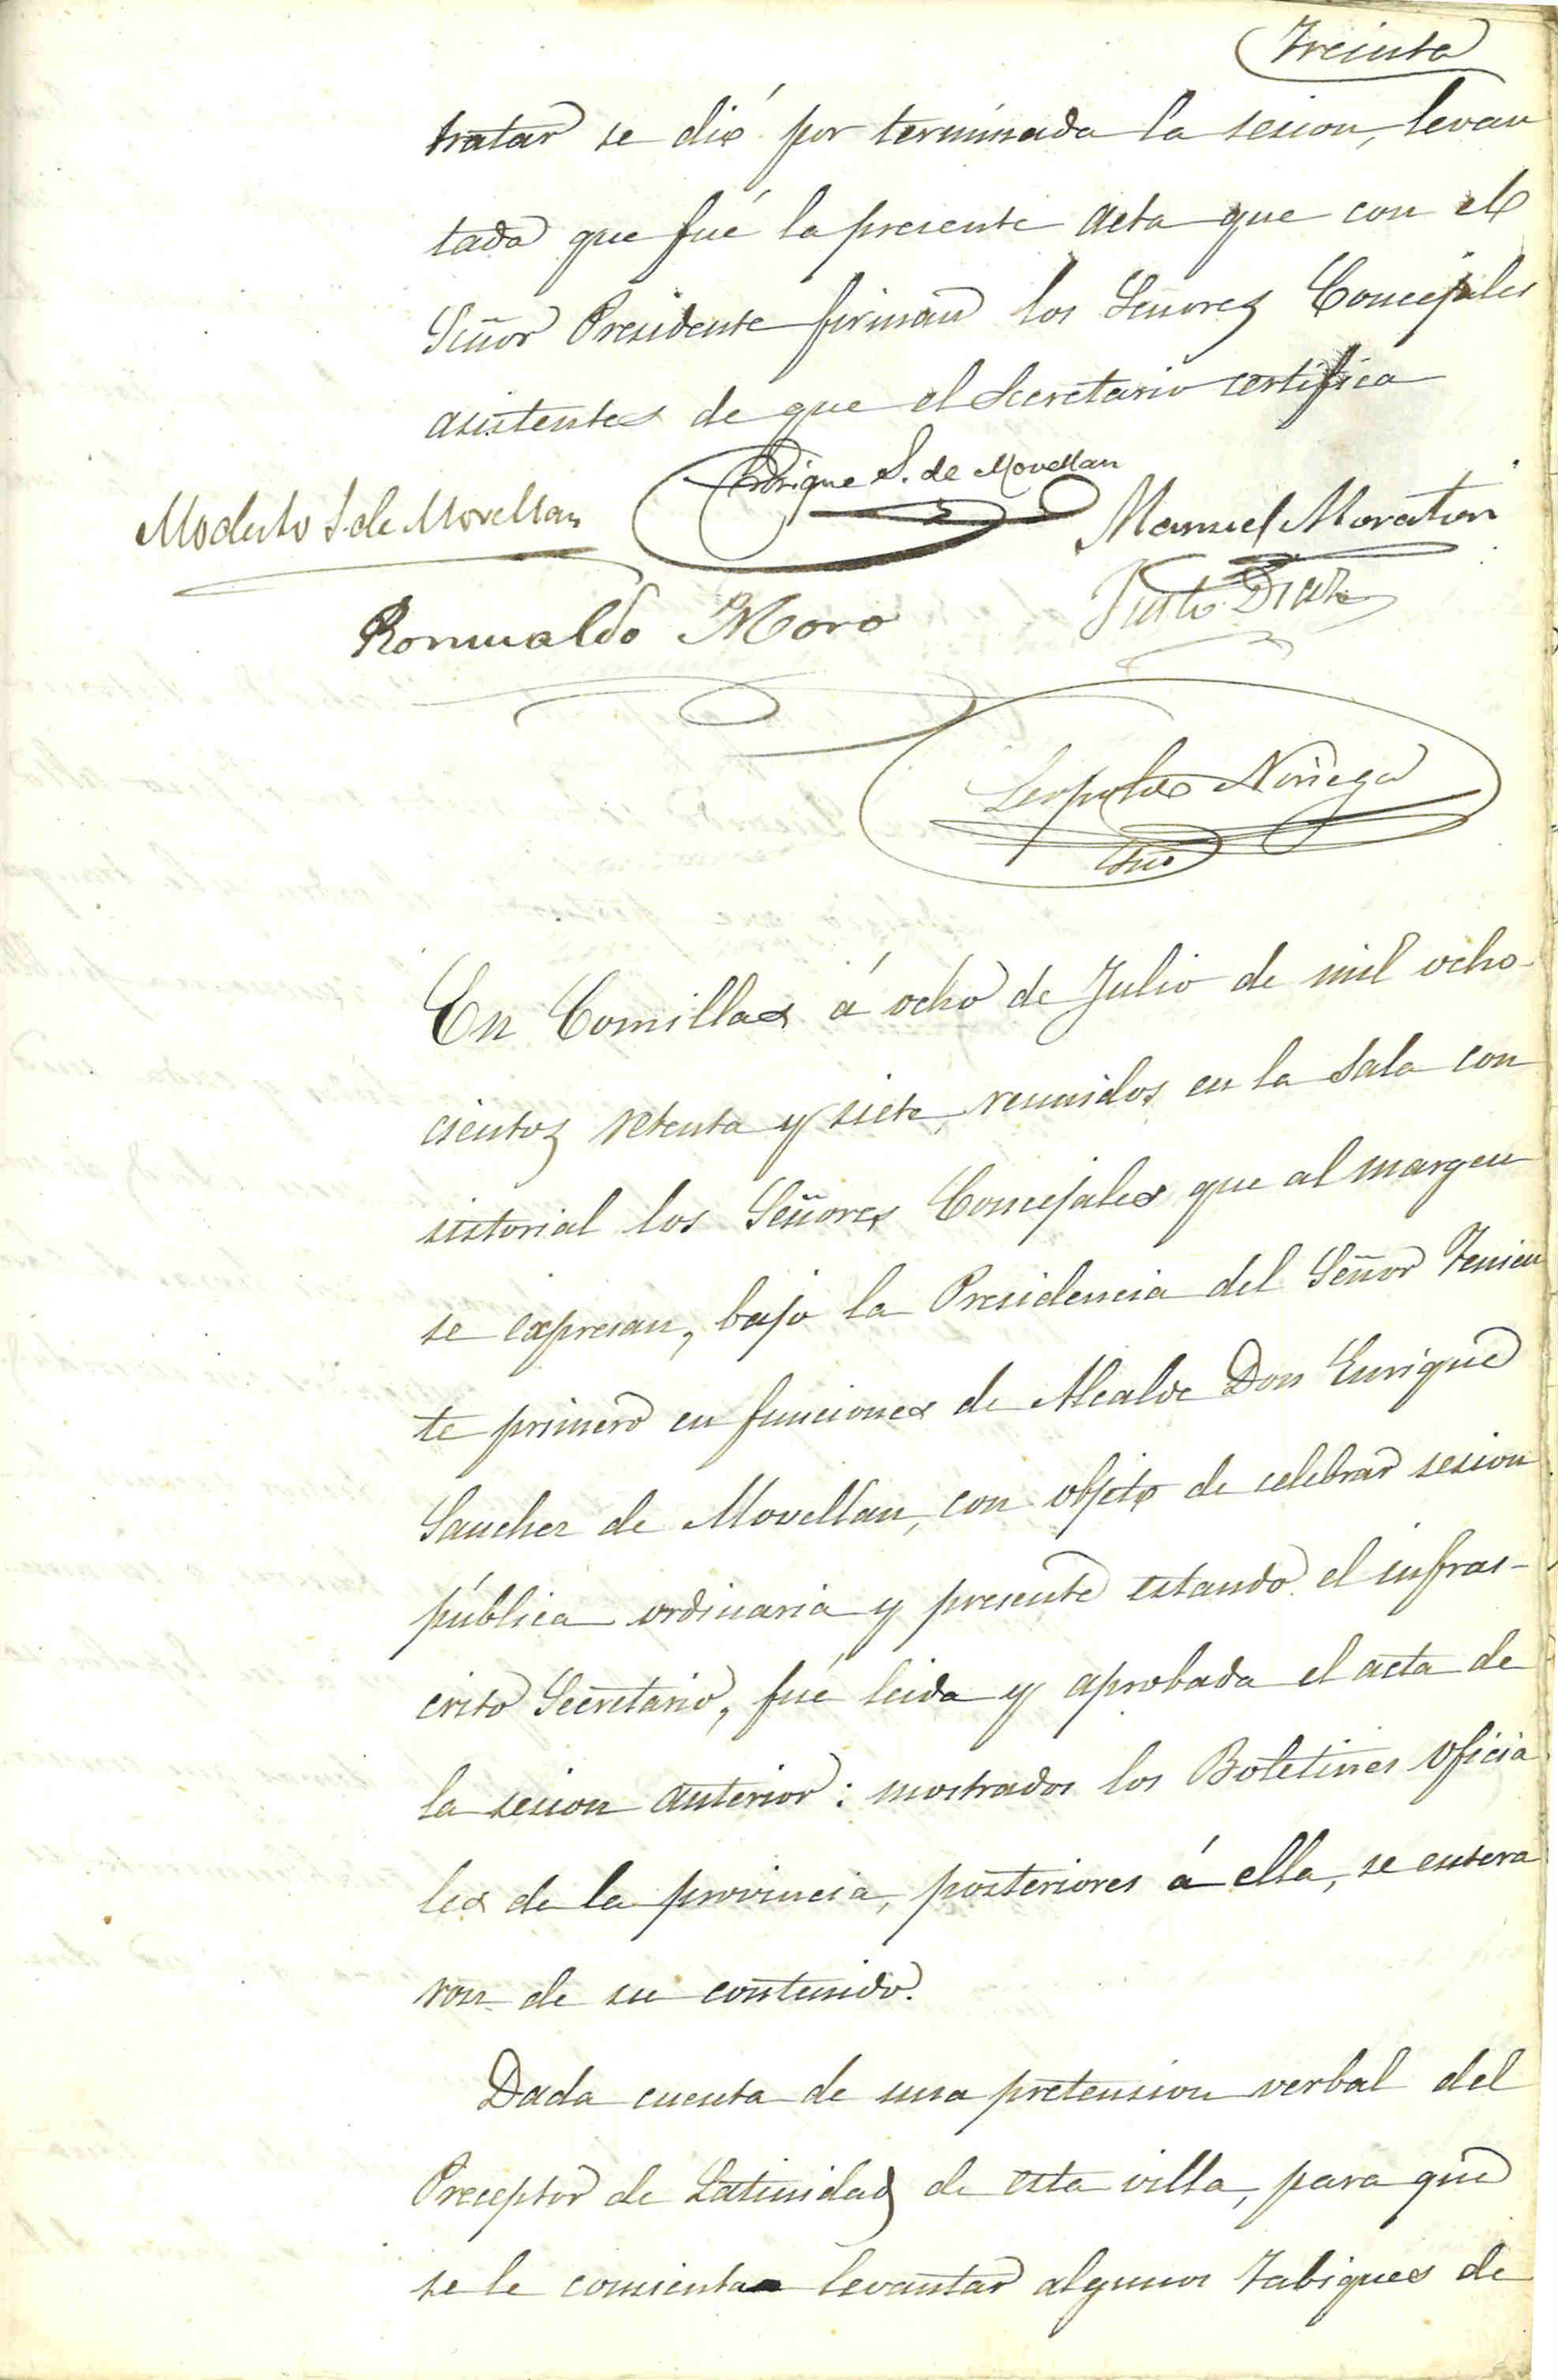 Treinta
tratar se dió por terminada la sesion, levan
tada que fué la presente acta que con el
Señor Presidente firman los Señores Concejales
asistentes de que el Secretario certifica
Enrique S. de Movellan
Modesto S. de Movellan
Manuel Moraton
Justo Diaz
Romualdo Moro
Leopoldo Noriega
Srio
En Comillas á ocho de Julio de mil ocho-
cientos setenta y siete, reunidos en la Sala con
sistorial los Señores Concejales que al margen
se expresan, bajo la Presidencia del Señor Tenien
te primero en funciones de Alcalde Don Enrique
Sanchez de Movellan, con objeto de celebrar sesion
pública ordinaria y presente estando el infras-
crito Secretario, fué leida y aprobada el acta de
la sesion anterior: mostrados los Boletines oficia
les de la provincia, posteriores á ella, se entera
ron de su contenido.
Dada cuenta de una pretension verbal del
Preceptor de Latinidad de esta villa, para que
se le consienta levantar algunos Tabiques de